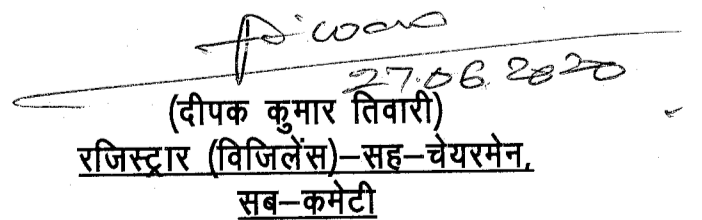 27.06.2020
(दीपक कुमार तिवारी)
रजिस्ट्रार (विजिलेंस)–सह–चेयरमेन,
सब–कमेटी